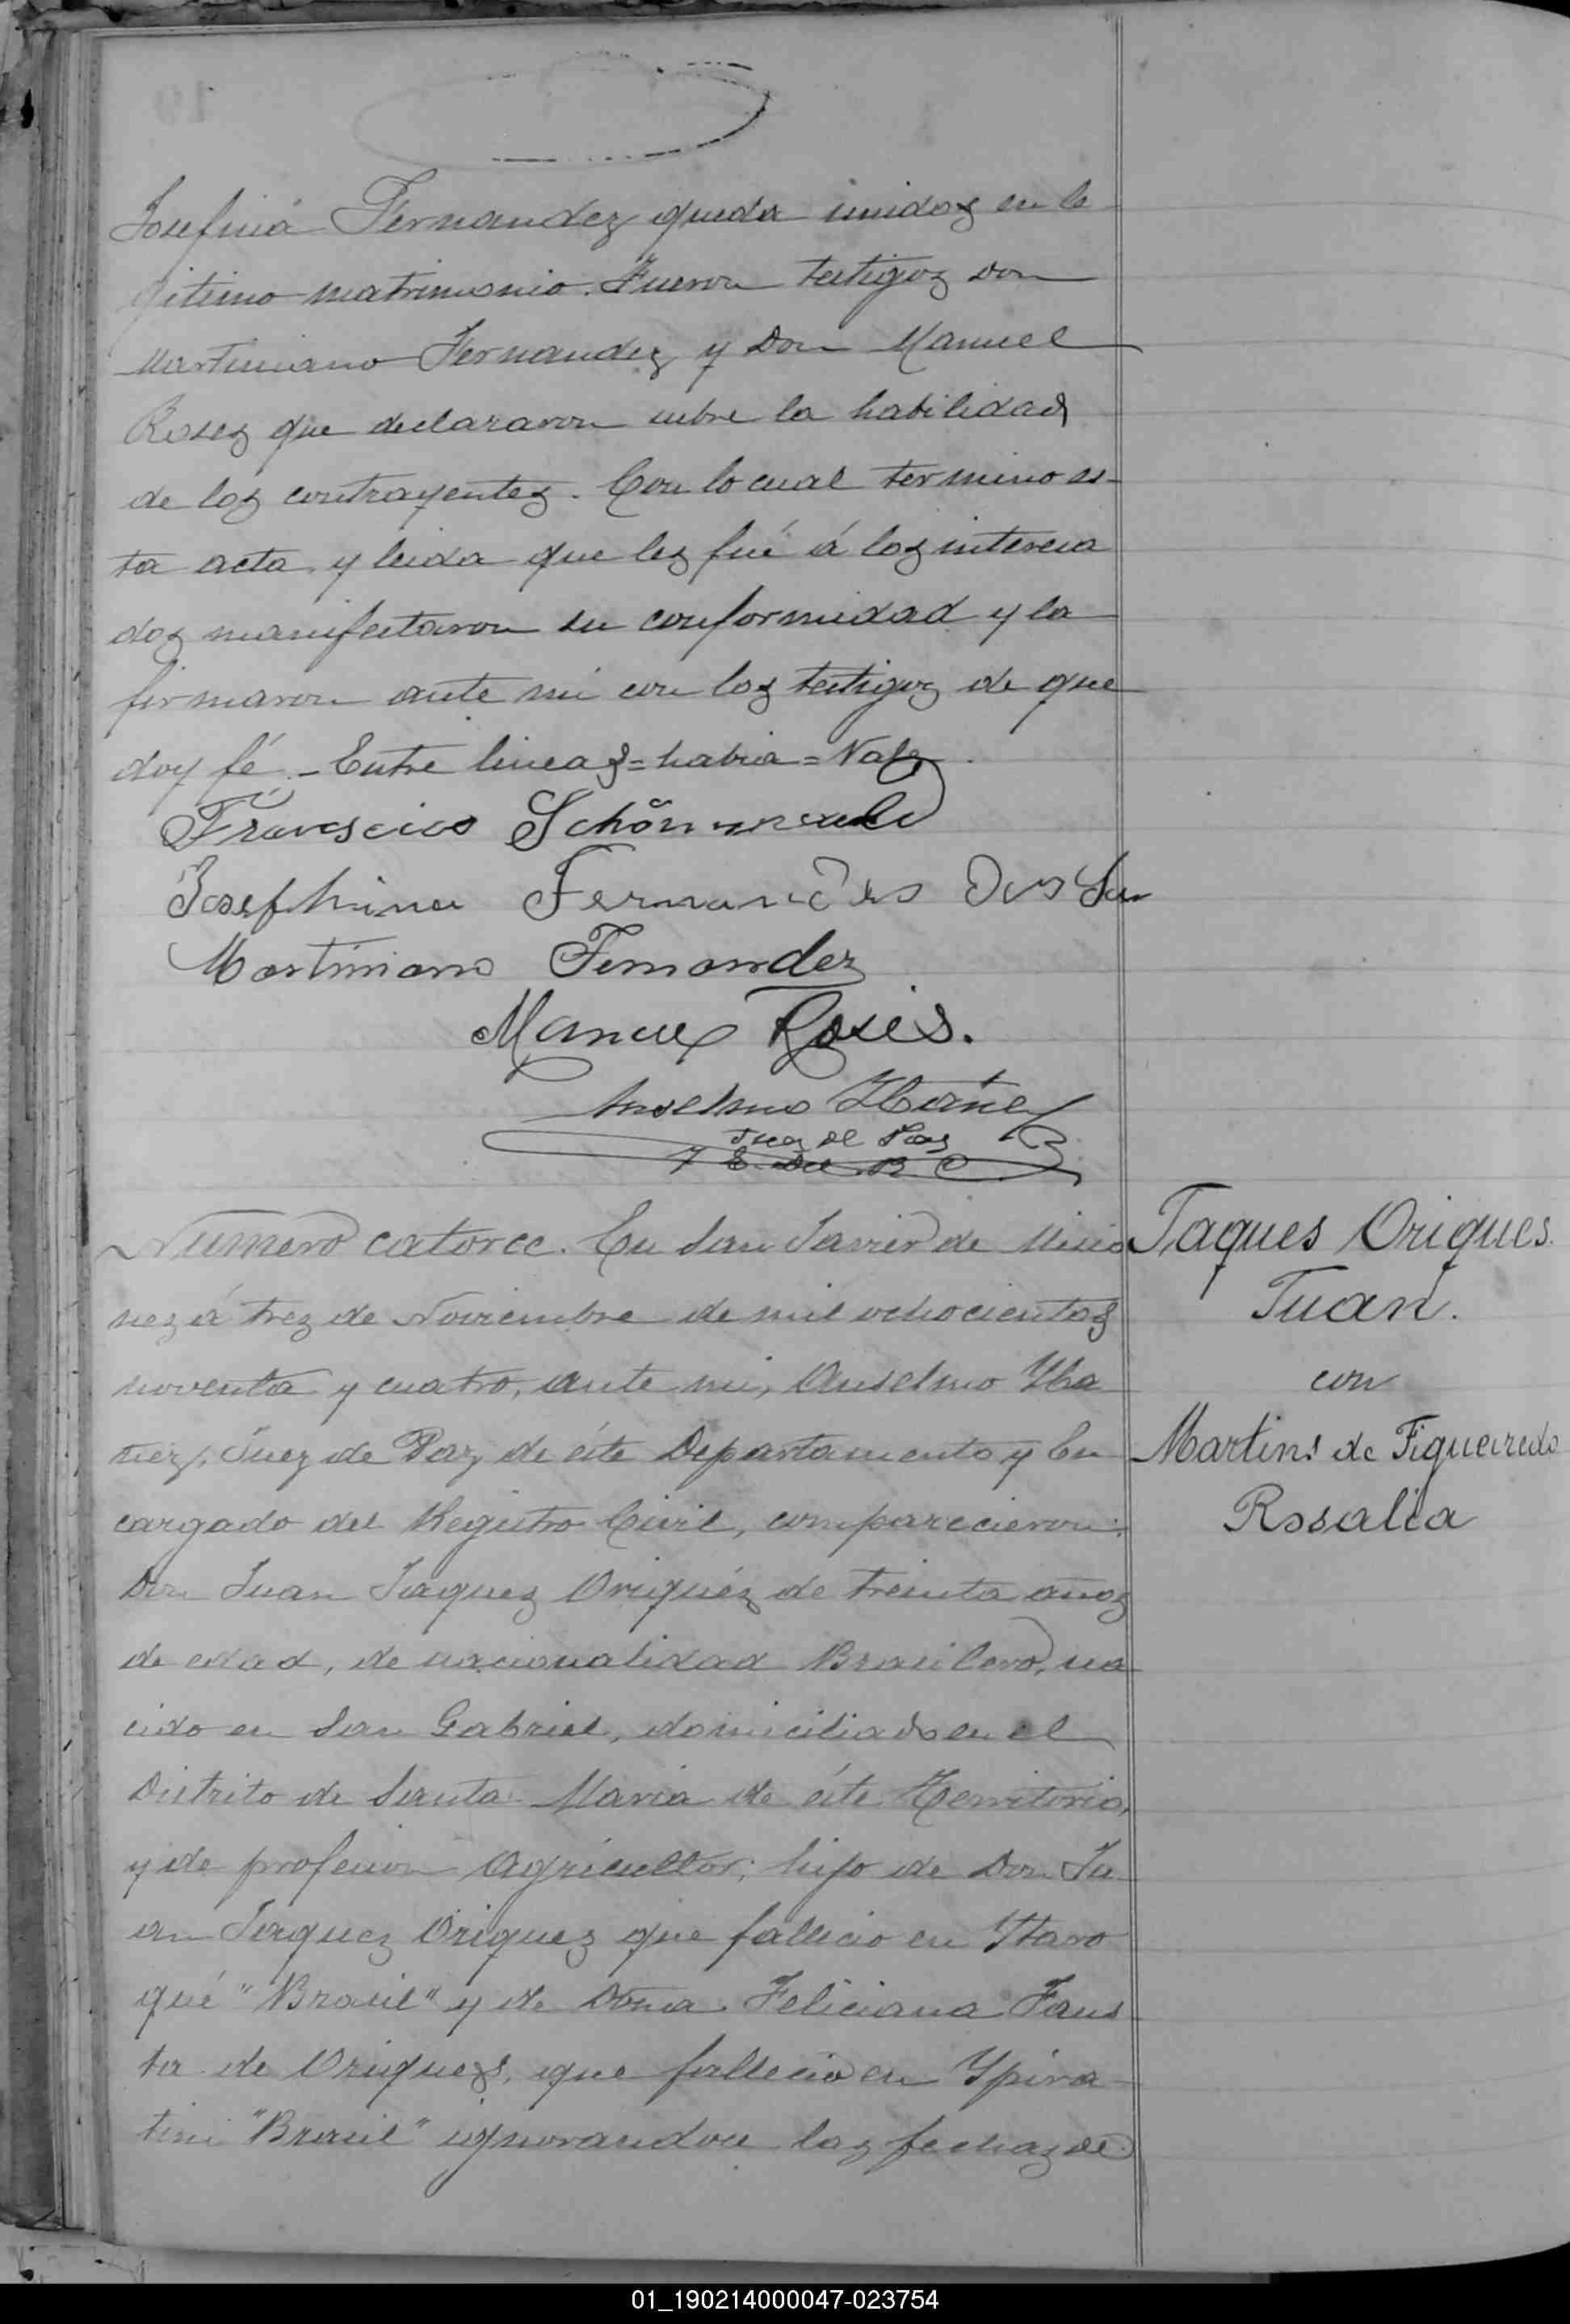 Josefina Fernandez queda unidos en le
gitimo matrimonio. Fueron testigos Don
Martiniano Fernandez y Don Manuel
Roses que declararon sobre la habilidad
de los contrayentes. Con lo cual termino es-
ta acta y leida que les fué á los interesa
dos manifestaron su conformidad y la
firmaron ante mi con los testigos de que
doy fé. - Entre lineas = habia = Vale.
Francisco
Josephina Fernandes
Martiniano Fernandez
Manuel Roses.
Anselmo Ibañez
Juez de Paz
Numero catorce. En San Javier de Misio
nes á tres de Noviembre de mil ochocientos
noventa y cuatro, ante mi, Anselmo Yba
ñez, Juez de Paz de éste Departamento y En
cargado del Registro Civil, comparecieron:
Don Juan Jaques Oriqués de treinta años
de edad, de nacionalidad Brasilero, na
cido en San Gabriel, domiciliado en el
Distrito de Santa Maria de éste Territorio,
y de profesion Agricultor; hijo de Don Ju
an Jaques Oriques que fallecio en Ytaro
qué "Brasil" y de Doña Feliciana Faus
ta de Oriques, que fallecio en Ypira
tini "Brasil" ignorandose las fechas de
Jaques Oriques.
Juan.
con
Martins de Figueiredo
Rosalia
01_190214000047-023754